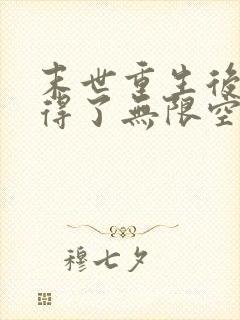 末世重生後
得了無限空
穆七夕